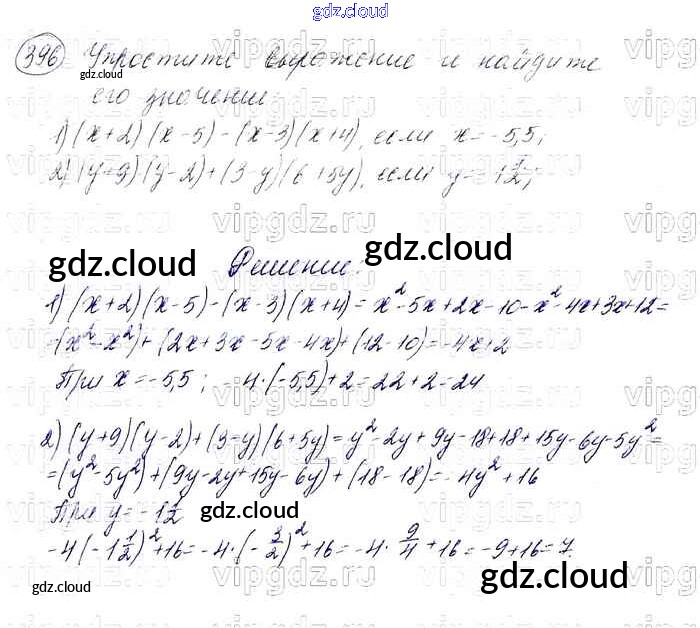 gdz.cloud
396 Упростите выражение и найдите
gdz.cloud
его значение:
1) (x+2)(x-5)-(x-3)(x+4), если x=-5,5;
2) (y+9)(y-2)+(3-y)(6+5y), если y=-1 1/2;
gdz.cloud
gdz.cloud
Решение:
1) (x+2)(x-5)-(x-3)(x+4)=x²-5x+2x-10-x²-4x+3x+12=
=(x²-x²)+(2x+3x-5x-4x)+(12-10)=-4x+2
При x=-5,5; -4·(-5,5)+2=22+2=24
2) (y+9)(y-2)+(3-y)(6+5y)=y²-2y+9y-18+18+15y-6y-5y²=
=(y²-5y²)+(9y-2y+15y-6y)+(18-18)=-4y²+16
При y=-1 1/2
gdz.cloud
-4(-1 1/2)²+16=-4·(-3/2)²+16=-4·9/4+16=-9+16=7.
gdz.cloud
gdz.cloud
vipgdz.ru